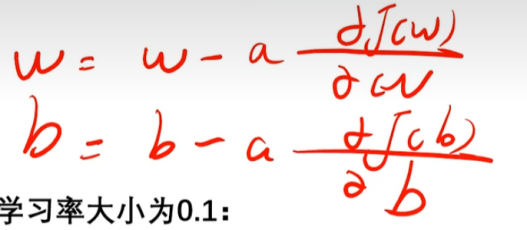 w = w - a ∂J(w) / ∂w
b = b - a ∂J(b) / ∂b
学习率大小为0.1：